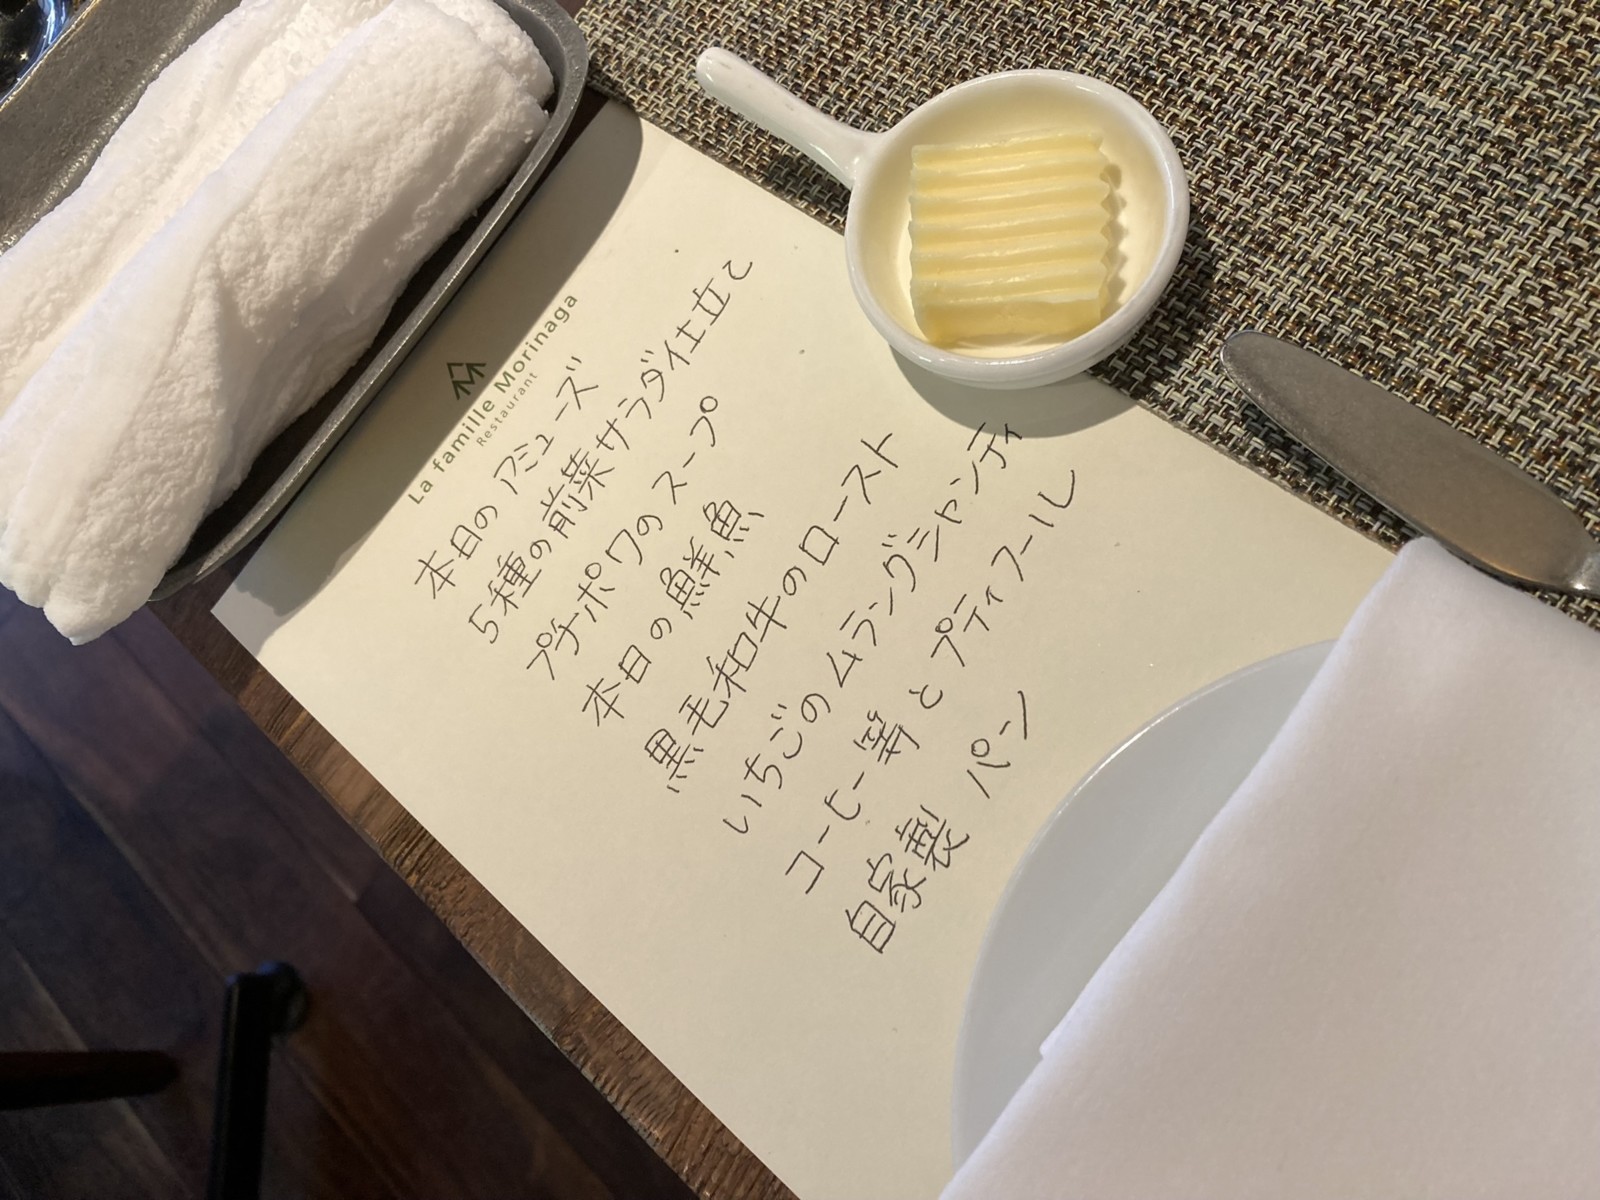 La famille Morinaga
Restaurant
本日の アミューズ
5種の前菜サラダ仕立て
プチポワの スープ
本日の鮮魚
黒毛和牛のロースト
いちごの ムラングシャンティ
コーヒー等 と プティフール
自家製 パン